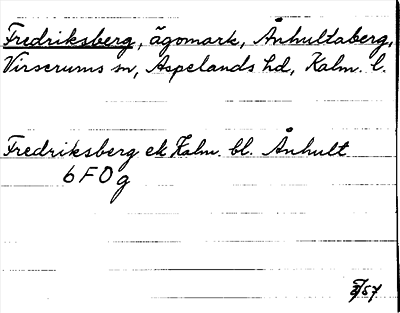 Fredriksberg, ägomark, Ånhultaberg,
Virserums sn, Aspelands hd, Kalm. l.
Fredriksberg ek Kalm. bl. Ånhult
6 F 0 g
57